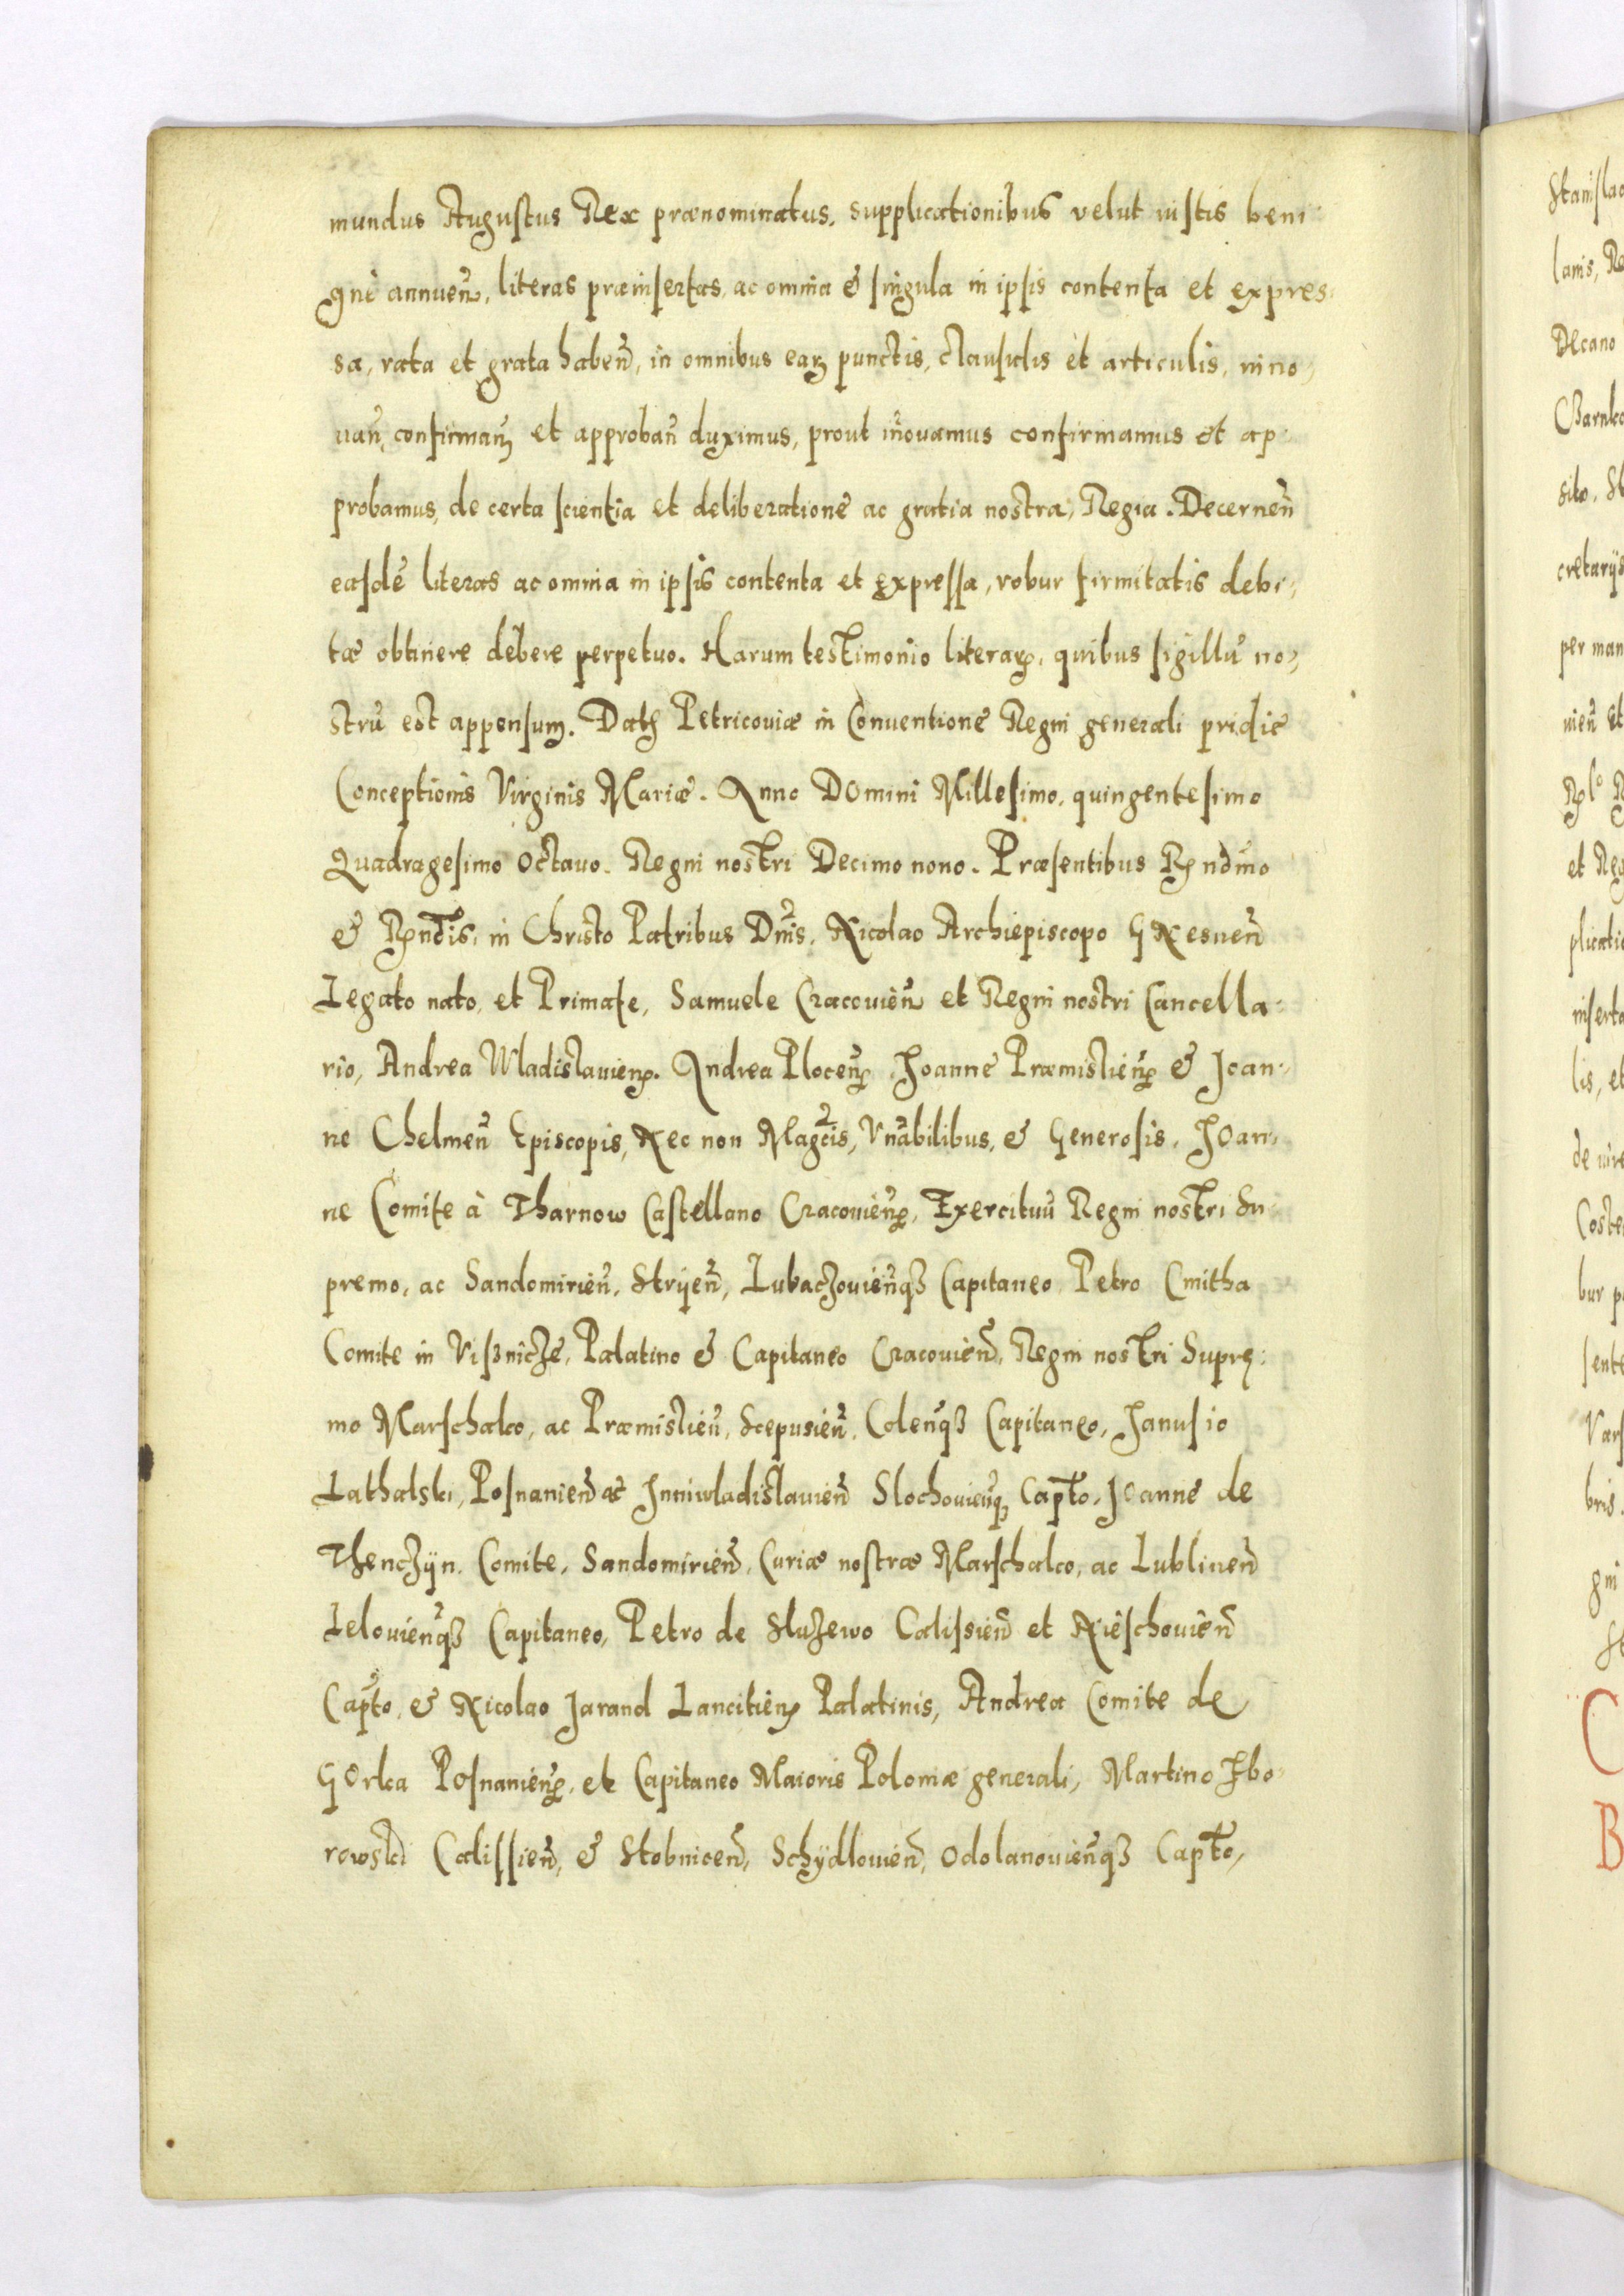 mundus Augustus Rex prænominatus, supplicationibus velut iustis beni-
gnè annueñ, literas præinsertas, ac omnia & singula in ipsis contenta et expres-
sa, rata et grata habeñ, in omnibus earꝫ punctis, clausulis et articulis, inno-
uañ, confirmañ et approbañ duximus, prout iñouamus confirmamus et ap-
probamus, de certa scientia et deliberatione ac gratia nostra, Regia. Decerneñ
easdē literas ac omnia in ipsis contenta et expressa, robur firmitatis debi-
tæ obtinere debere perpetuo. Harum testimonio literaꝝ, quibus sigillū no-
strū est appensum. Datꝫ Petricouiæ in Conuentione Regni generali pridie
Conceptionis Virginis Mariæ. Anno Domini Millesimo, quingentesimo
Quadragesimo octauo. Regni nostri Decimo nono. Præsentibus Rndmo
& Rndis, in Christo Patribus Dnis, Nicolao Archiepiscopo Gnesneñ
Legato nato, et Primate, Samuele Cracouieñ et Regni nostri Cancella-
rio, Andrea Wladislauieñ. Andrea Ploceñ, Joanne Præmislieñ & Joan-
ne Chelmeñ Episcopis, Nec non Magcis, Vnabilibus, & Generosis, Joan-
ne Comite à Tharnow Castellano Cracouieñ, Exercituū Regni nostri Su-
premo, ac Sandomirieñ, Stryeñ, Lubaczouieñqꝫ Capitaneo, Petro Cmitha
Comite in Visznicze, Palatino & Capitaneo Cracouieñ, Regni nostri Supre-
mo Marschalco, ac Præmislieñ, Scepusieñ, Coleñqꝫ Capitaneo, Janusio
Lathalski, Posnanieñ ac Juniwladislauieñ Slochouieñqꝫ Capto, Joanne de
Thenczÿn Comite, Sandomirieñ, Curiæ nostræ Marschalco, ac Lublineñ
Lelouieñqꝫ Capitaneo, Petro de Sluzewo Calissieñ et Nieschouieñ
Capto, & Nicolao Jarand Lancitieñ Palatinis, Andrea Comite de
Gorka Posnanieñ, et Capitaneo Maioris Poloniæ generali, Martino Zbo-
rowski Calissieñ, & Stobniceñ, Schÿdlouieñ, Odolanouieñqꝫ Capto,